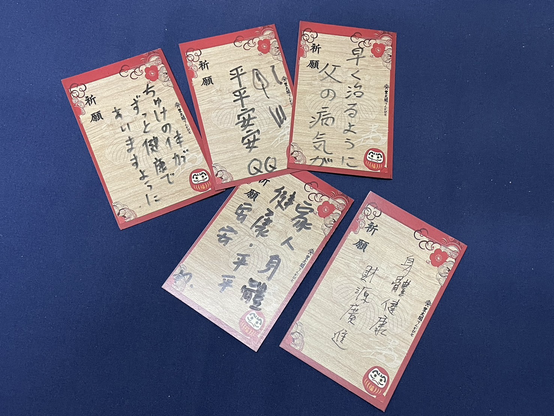 祈願
ちゅけの体が
ずっと健康で
ありますように
祈願
平平安安
QQ
祈願
早く治るように
父の病気が
祈願
家人身體
健康・平平
安安
祈願
身體健康
財源廣進